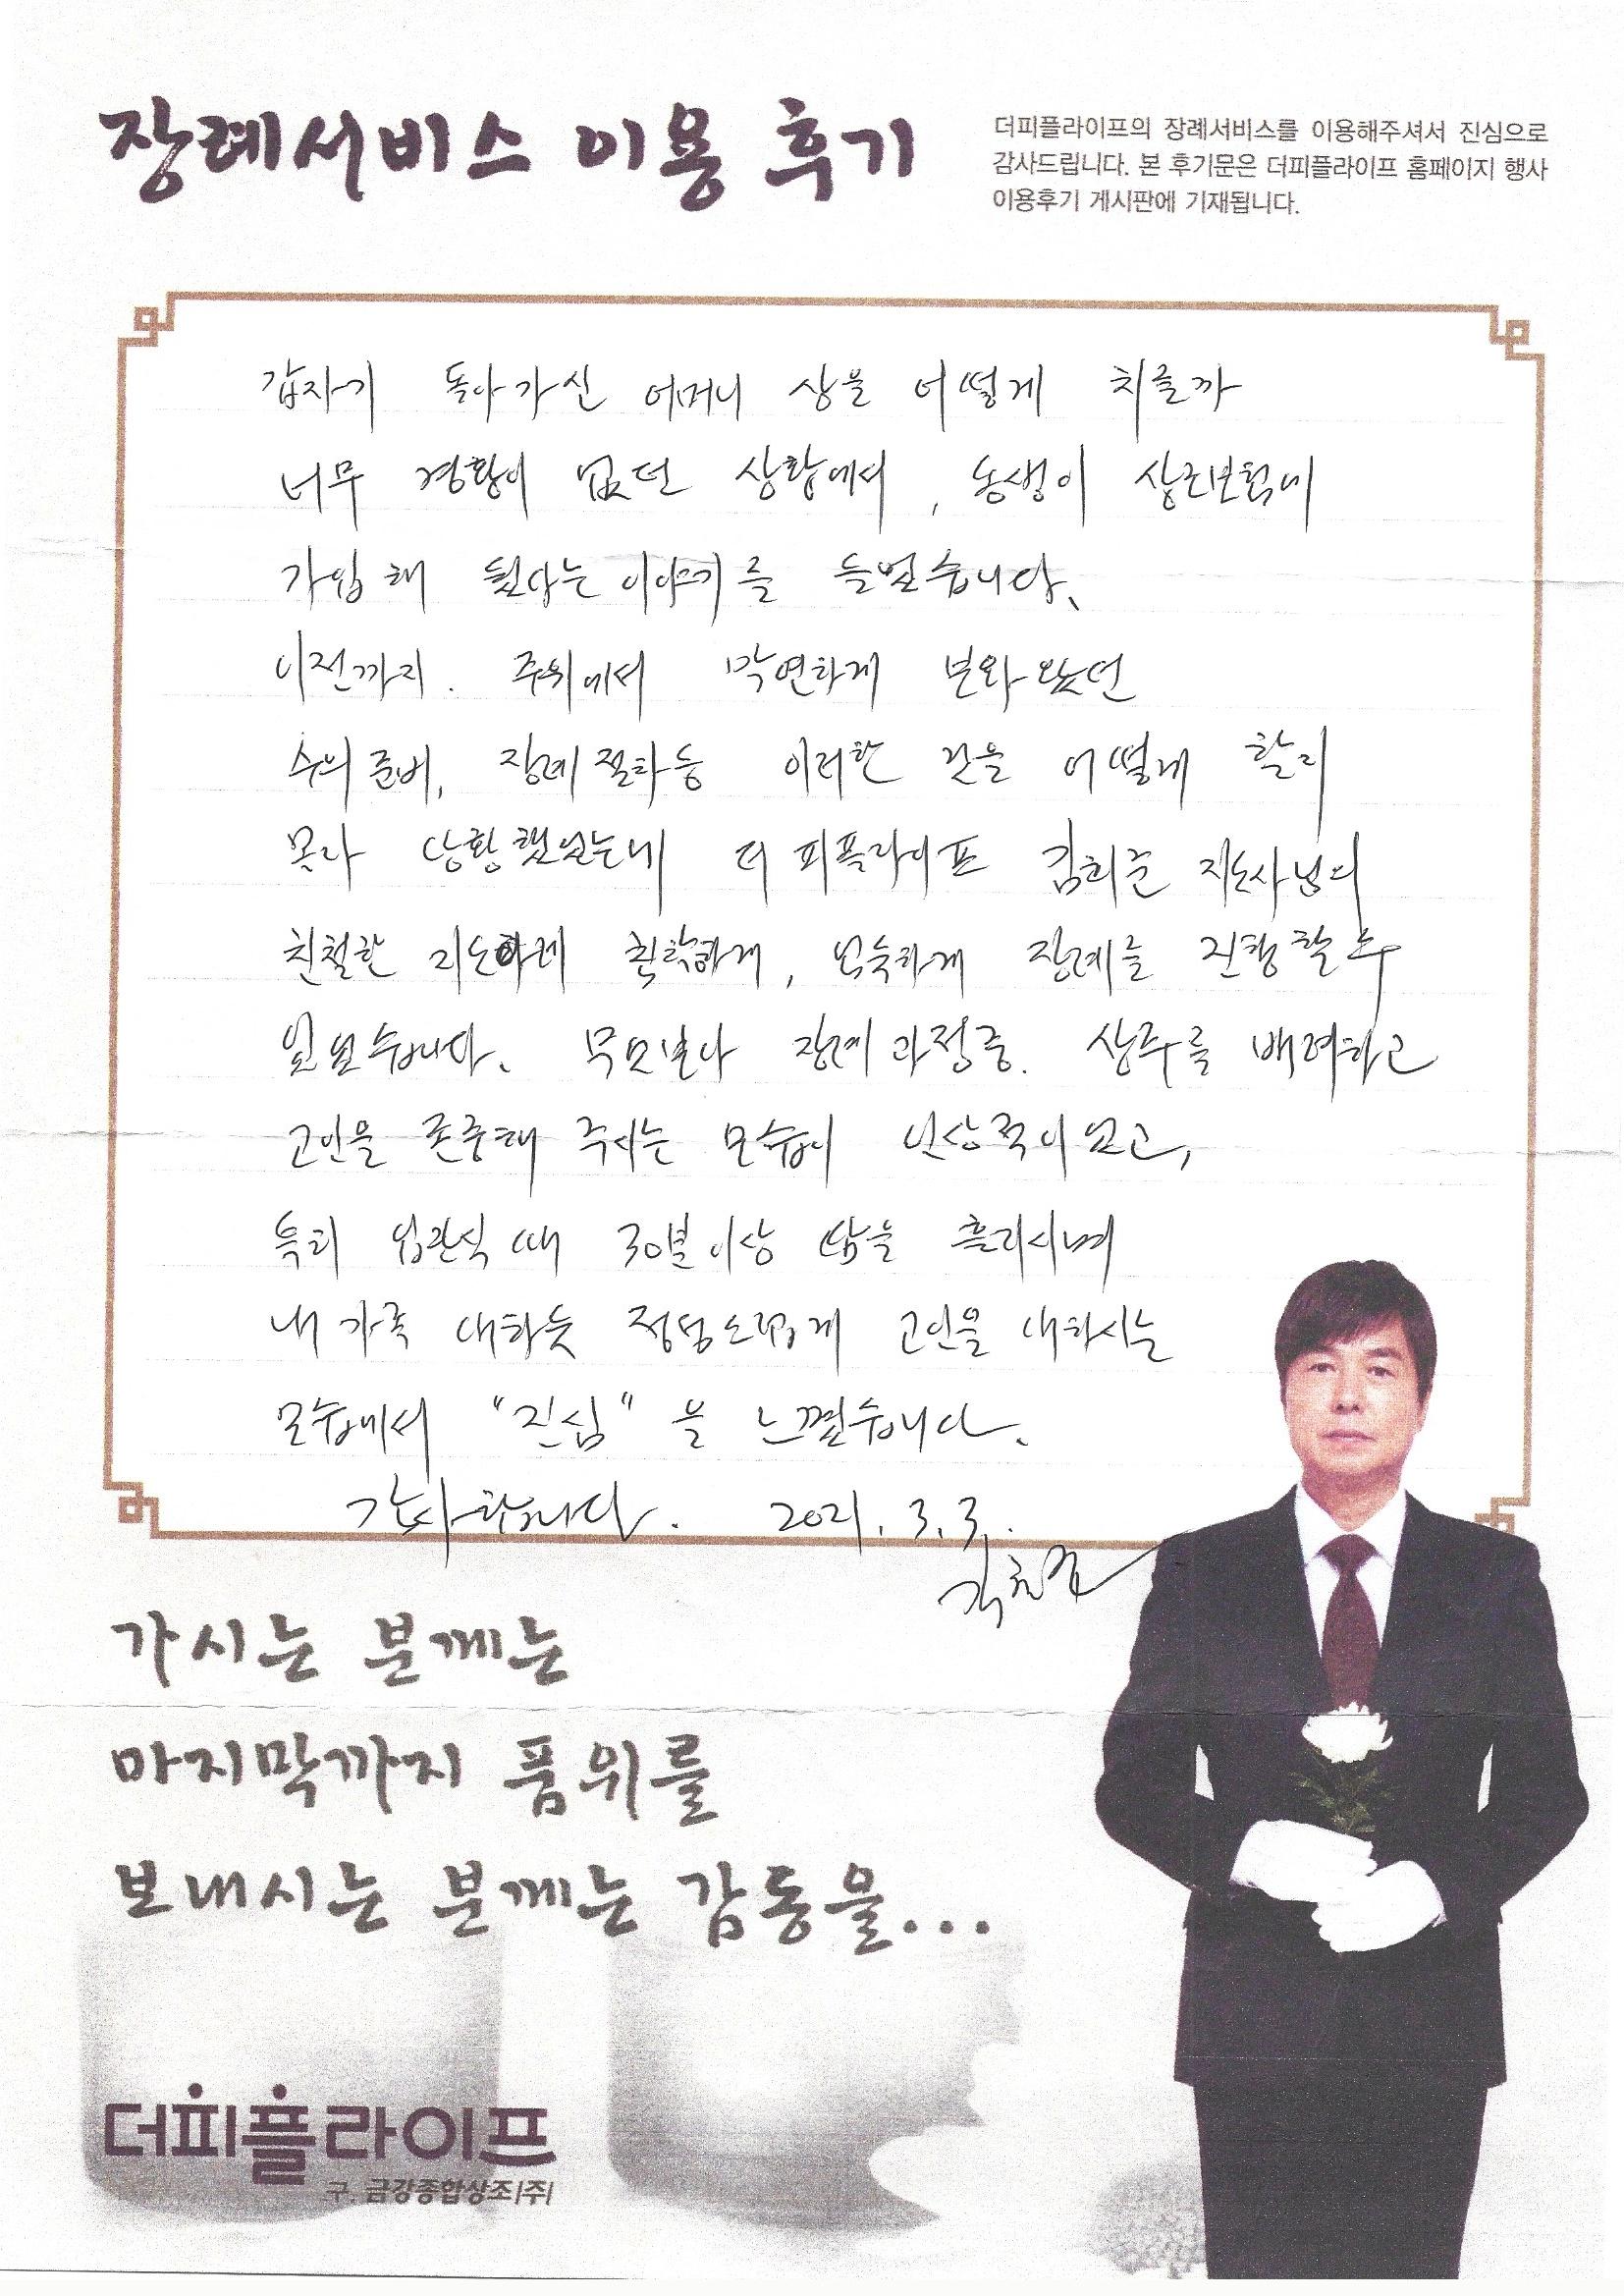 장례서비스 이용 후기
더피플라이프의 장례서비스를 이용해주셔서 진심으로
감사드립니다. 본 후기문은 더피플라이프 홈페이지 행사
이용후기 게시판에 기재됩니다.
갑자기 돌아가신 어머니 상을 어떻게 치를까
너무 경황이 없던 상황에서, 동생이 상조보험에
가입해 뒀다는 이야기를 들었습니다.
이전까지. 주위에서 막연하게 보아왔던
수의 준비, 장례절차등 이러한 것을 어떻게 할지
몰라 당황했었는데 더피플라이프 김희준 지도사님의
친절한 지도아래 침착하게, 엄숙하게 장례를 진행할 수
있었습니다. 무엇보다 장례과정중. 상주를 배려하고
고인을 존중해 주시는 모습이 인상적이었고,
특히 입관식 때 30분이상 땀을 흘리시며
내 가족 대하듯 정성스럽게 고인을 대하시는
모습에서 "진심"을 느꼈습니다.
감사합니다. 2021. 3. 3.
가시는 분께는
마지막까지 품위를
보내시는 분께는 감동을...
더피플라이프
구. 금강종합상조(주)